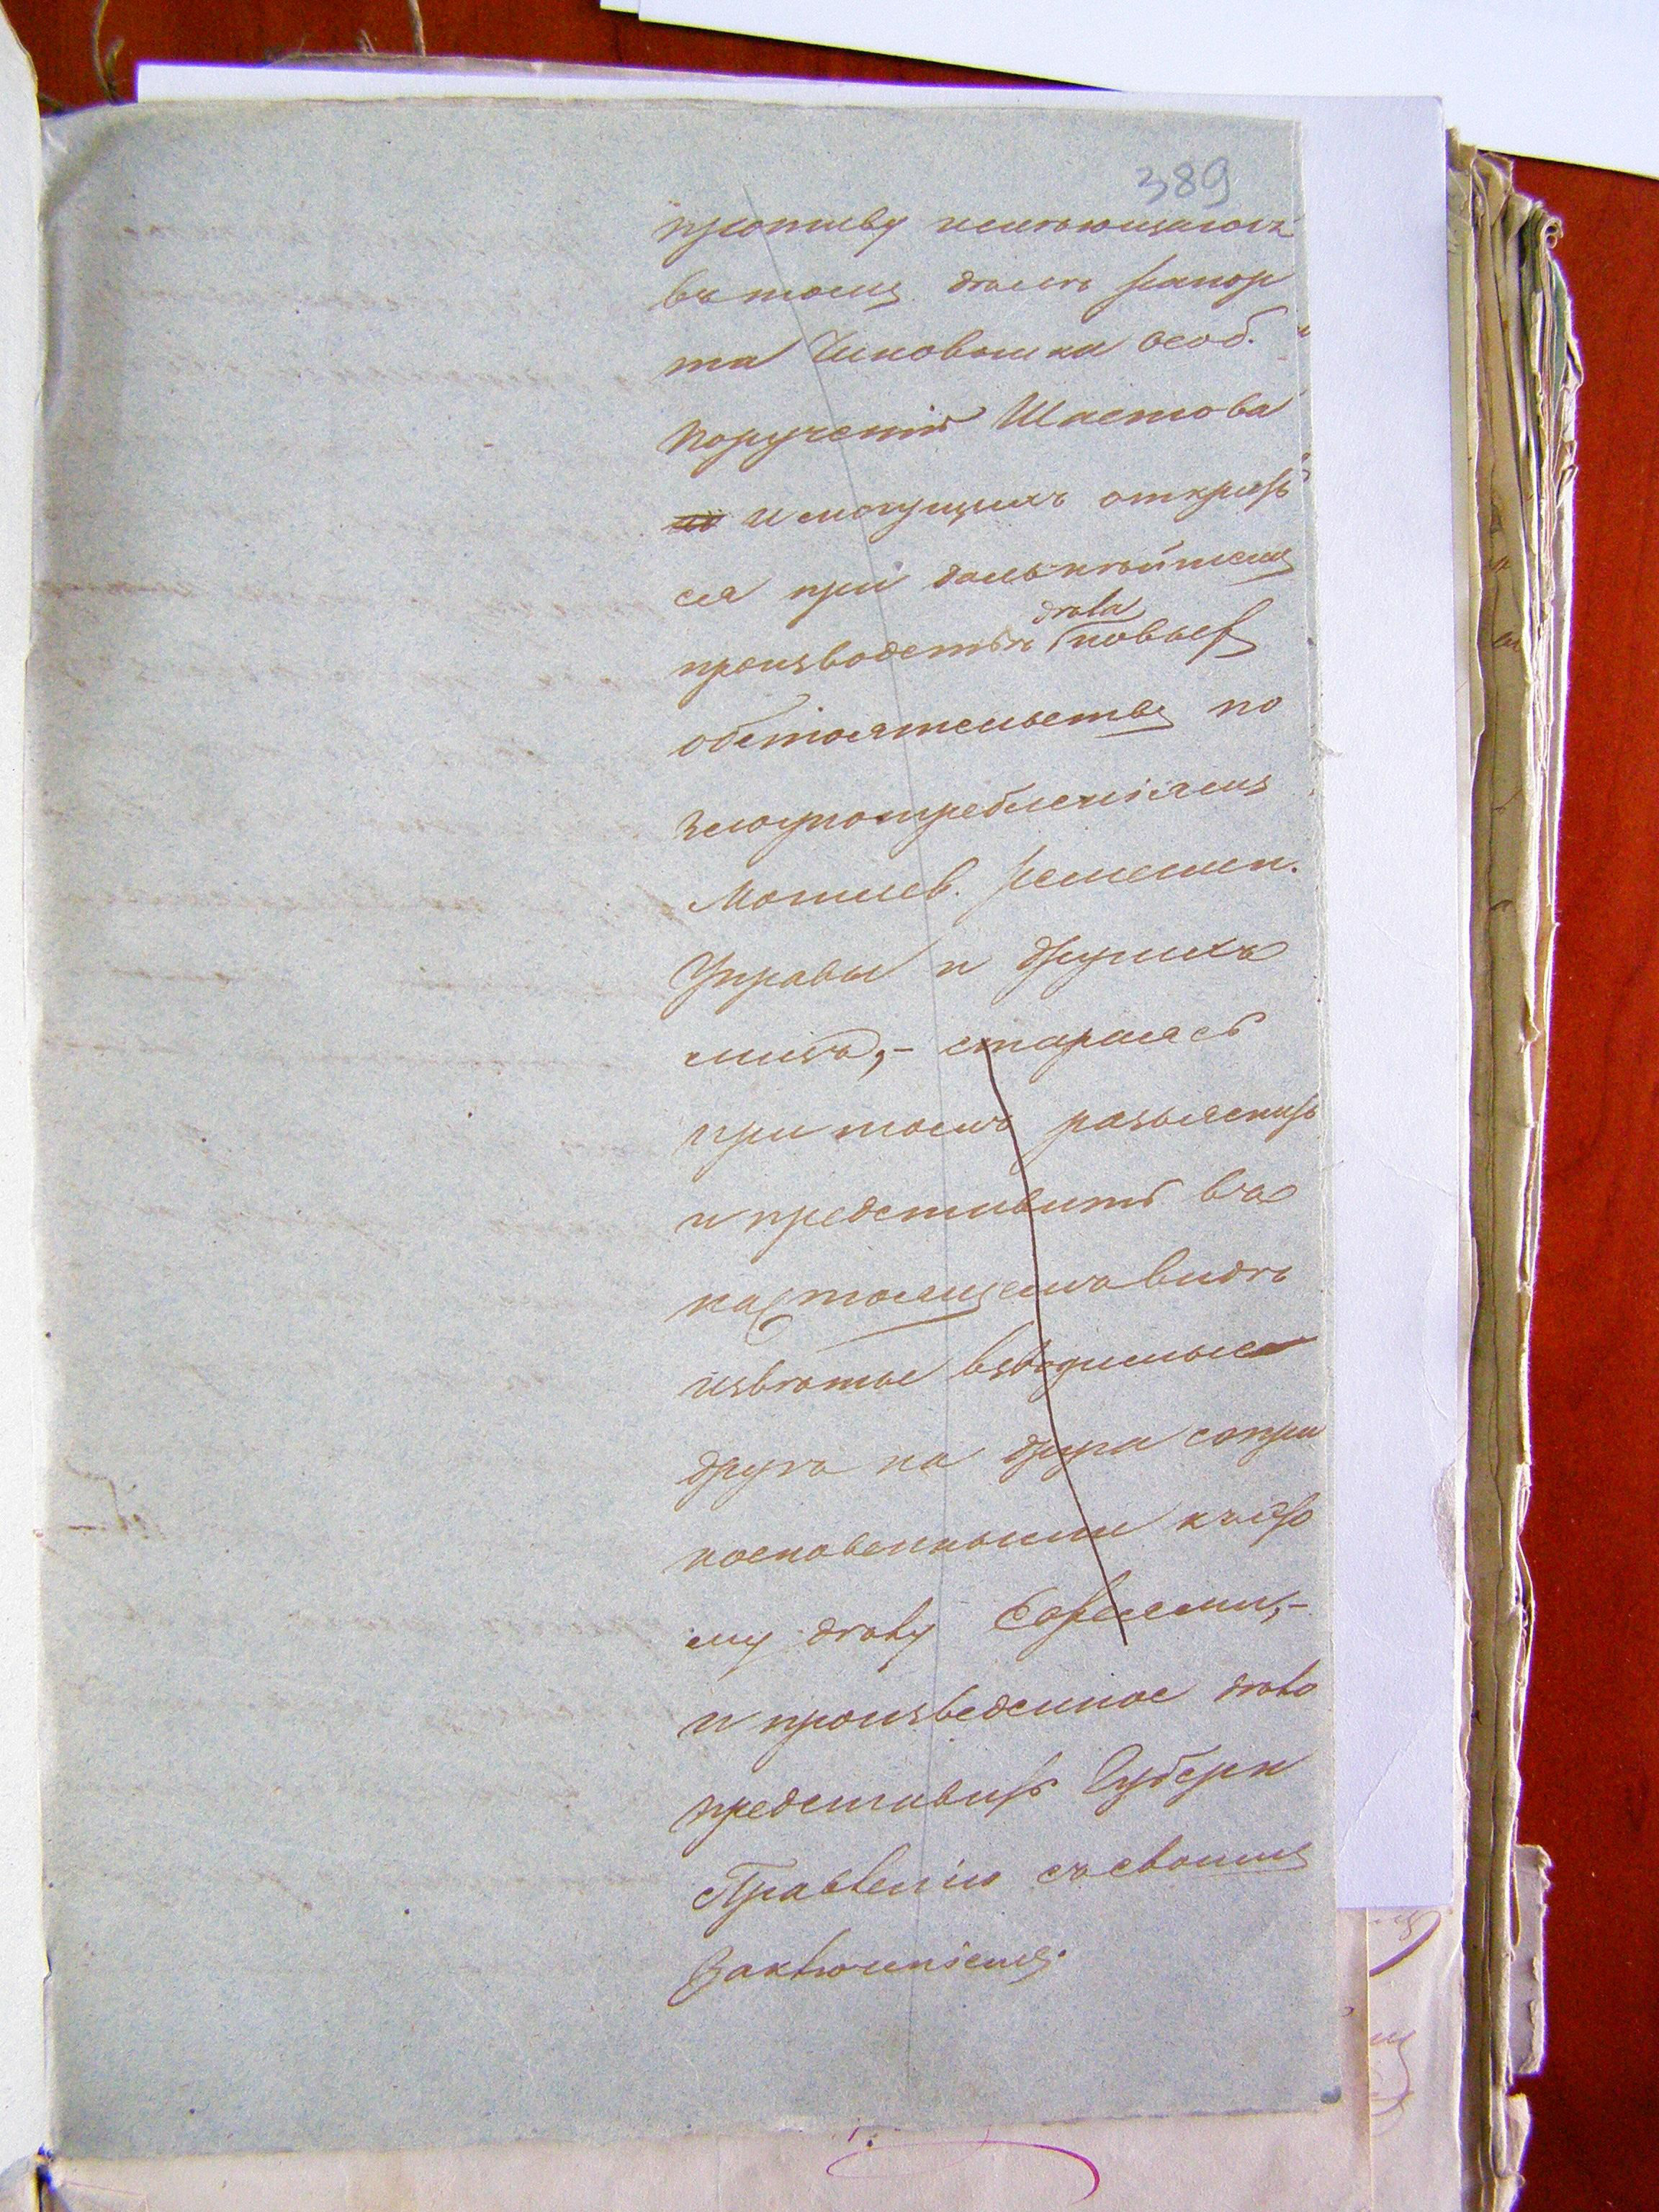 389
противу имѣющагося
въ томъ дѣлѣ рапор
та Чиновника особ.
порученій Шастова
и могущихъ открыть
ся при дальнѣйшемъ
производствѣ дѣла новыхъ
обстоятельствъ по
злоупотребленіямъ
Могилев. ремеслен.
Управы и другихъ
лицъ, – стараясь
при томъ разъяснить
и представить въ
настоящемъ видѣ
извѣты взводимые
другъ на друга сопри
косновенными къ сѣ
му дѣлу Евреями, –
и произведенное дѣло
представить Губерн
Правленію съ своимъ
Заключеніемъ.